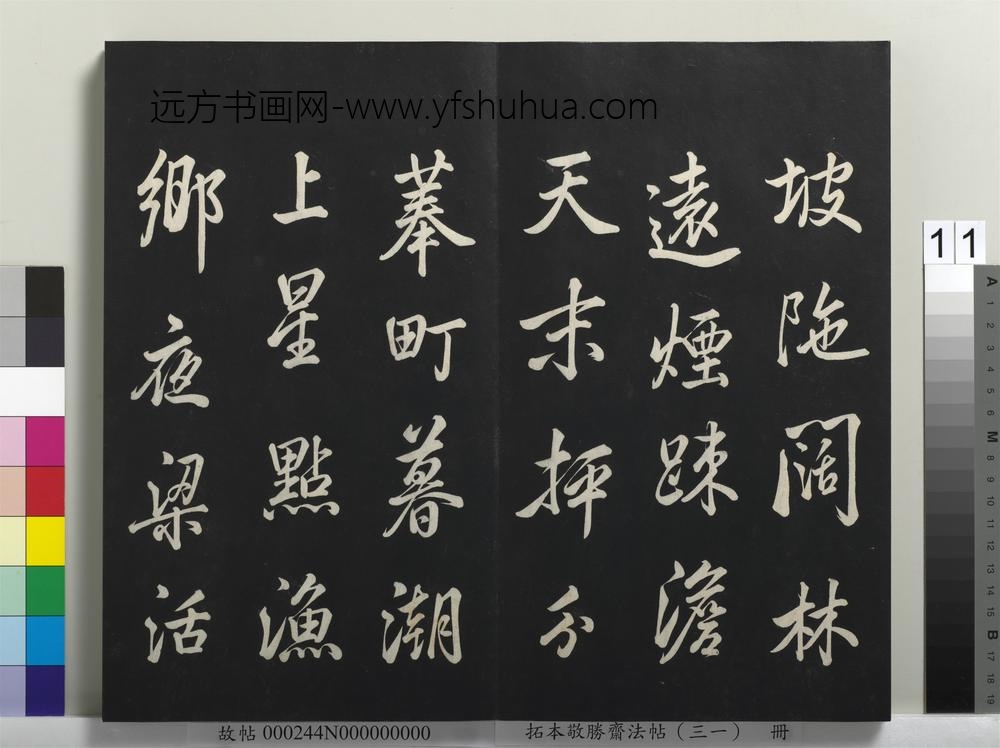 远方书画网-www.yfshuhua.com
坡陁闊林
遠煙疎澹
天末抨分
菶町暮潮
上星點漁
鄉夜梁活
故帖 000244N000000000
拓本敬勝齋法帖（三一） 冊
11
A 1 2 3 4 5 6 M 8 9 10 11 12 13 14 15 B 17 18 19